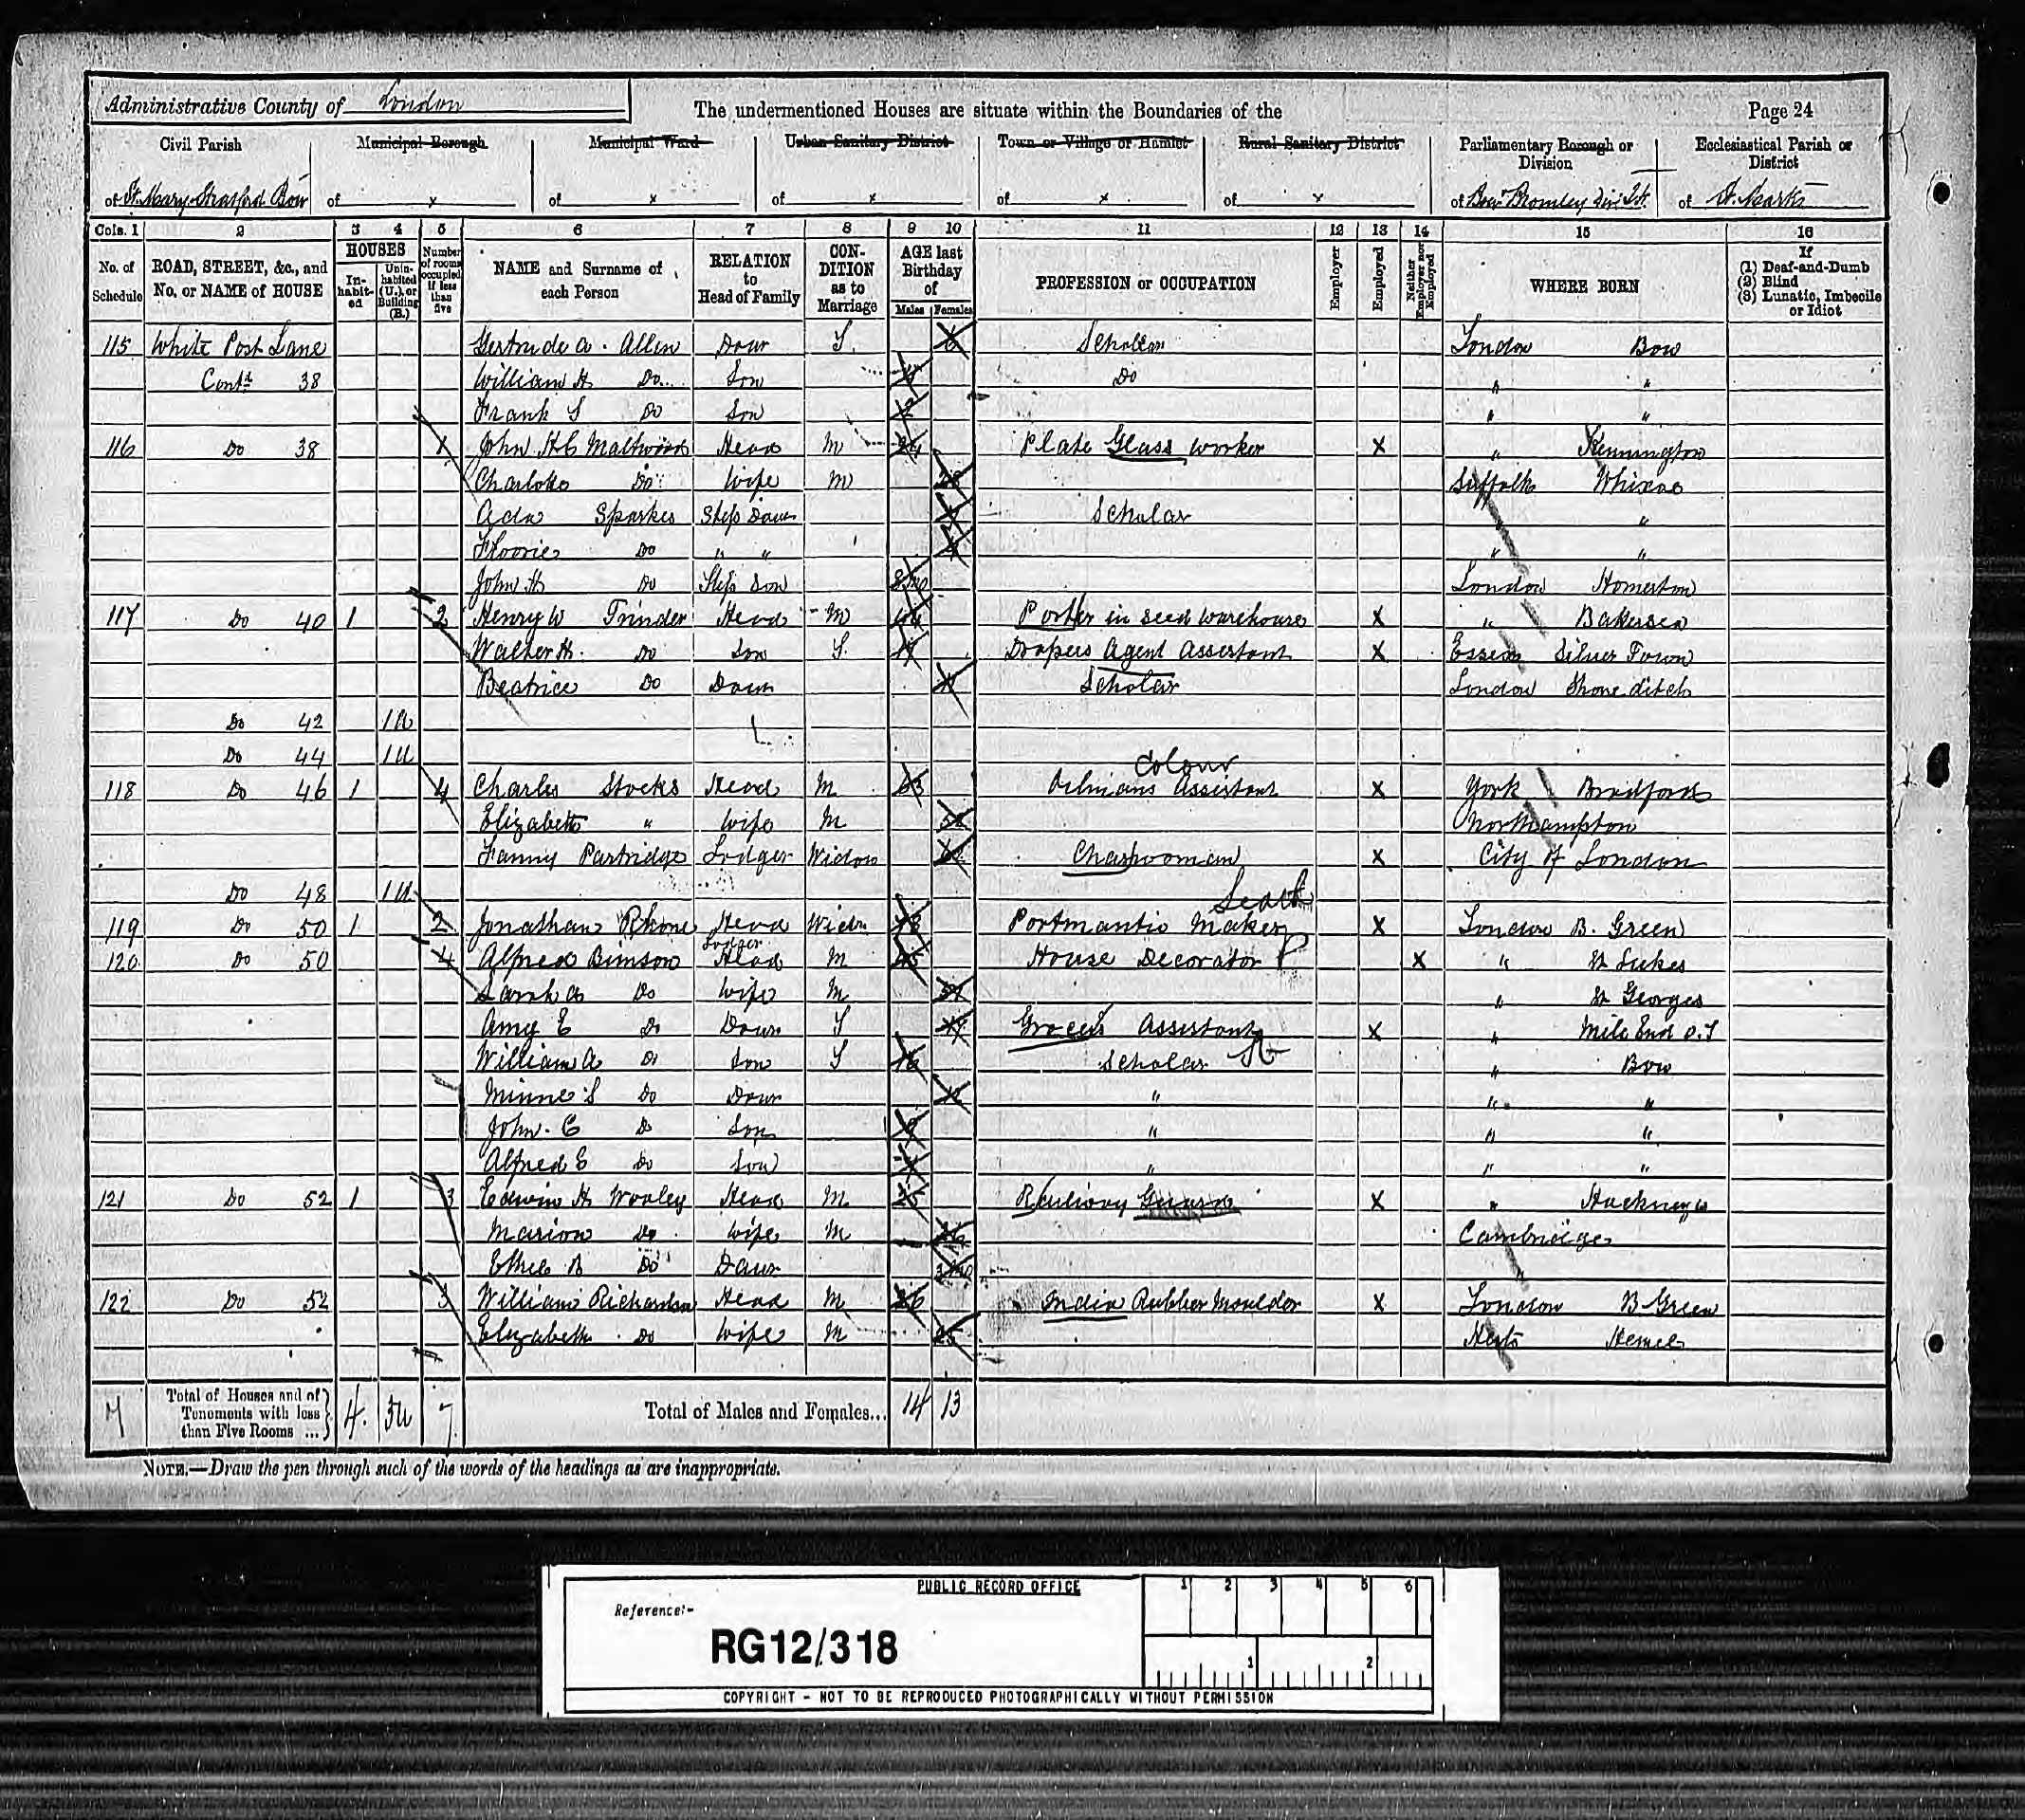 Administrative County of London
The undermentioned Houses are situate within the Boundaries of the
Page 24
Civil Parish
of St. Mary Stratford Bow
Municipal Borough
of x
Municipal Ward
of x
Urban Sanitary District
of x
Town or Village or Hamlet
of x
Rural Sanitary District
of x
Parliamentary Borough or Division
of Bow & Bromley
Ecclesiastical Parish or District
of St. Marks
Cols. 1 2 3 4 5 6 7 8 9 10 11 12 13 14 15 16
No. of Schedule
ROAD, STREET, &c., and No. or NAME of HOUSE
HOUSES
Inhabited
Uninhabited (U.), or Building (B.)
Number of rooms occupied if less than five
NAME and Surname of each Person
RELATION to Head of Family
CONDITION as to Marriage
AGE last Birthday of
Males Females
PROFESSION or OCCUPATION
Employer
Employed
Neither Employer nor Employed
WHERE BORN
If
(1) Deaf-and-Dumb
(2) Blind
(3) Lunatic, Imbecile or Idiot
115 White Post Lane Gertrude A. Allen Daur S. Scholar London Bow
Contd 38 William H Do Son Do " "
Frank S Do Son " "
116 Do 38 1 John H C Maltwood Head M 24 Plate Glass worker x " Kennington
Charlotte Do Wife M Suffolk
Ada Sparkes Step Daur Scholar "
Florrie Do " " " "
John H Do Step Son 8mo London Homerton
117 Do 40 1 2 Henry W Trinder Head M 44 Porter in seed warehouse x " Battersea
Walter H. Do Son S. 17 Drapers Agent Assistant x Essex Silver Town
Beatrice Do Daur Scholar London Shoreditch
Do 42 1U
Do 44 1U
Colour
118 Do 46 1 4 Charles Stocks Head M 53 Oilmans Assistant x York Bradford
Elizabeth " Wife M Northampton
Fanny Partridge Lodger Widow Charwoman x City of London
Do 48 1U
119 Do 50 1 2 Jonathan Head Widr 48 Portmantio Maker x London B. Green
Lodger
120 Do 50 4 Alfred Bimson Head M 45 House Decorator x " St Lukes
Sarah A Do Wife M " St Georges
Amy E Do Daur S 19 Grocers Assistant x " Mile End O.T
William A Do Son S 16 Scholar " Bow
Minnie S Do Daur " " "
John. C Do Son 9 " " "
Alfred E Do Son " " "
121 Do 52 1 3 Edwin H Worley Head M 25 Railway Guard x " Hackney
Marion Do Wife M 26 Cambridge
Ethel B Do Daur "
122 Do 52 3 William Richardson Head M 26 India Rubber Moulder x London B Green
Elizabeth Do Wife M 25 Herts Hemel
Total of Houses and of Tenements with less than Five Rooms ...
4. 5U 7
Total of Males and Females... 14 13
NOTE.—Draw the pen through such of the words of the headings as are inappropriate.
PUBLIC RECORD OFFICE
Reference:-
RG12/318
1 2 3 4 5 6
1 2
COPYRIGHT - NOT TO BE REPRODUCED PHOTOGRAPHICALLY WITHOUT PERMISSION